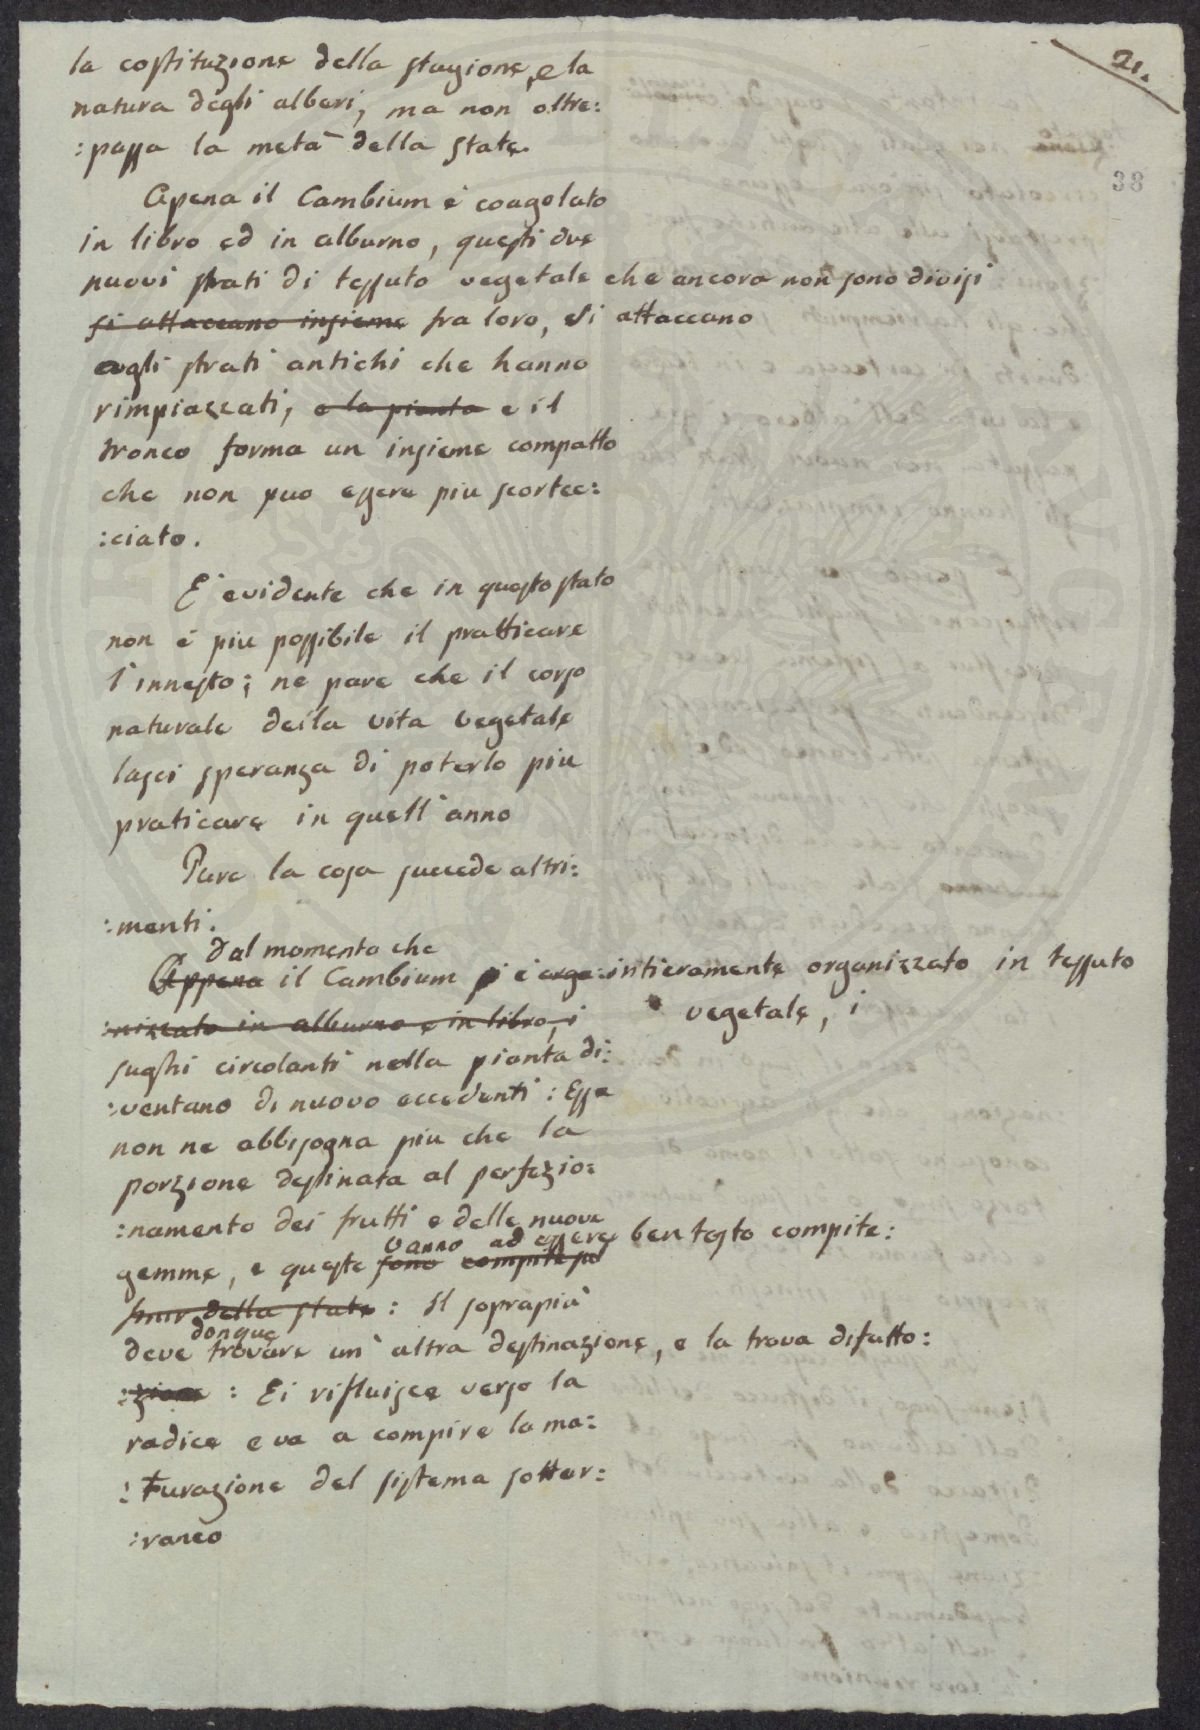 21.
38
la costituzione della stagione, e la
natura degli alberi, ma non oltre:
:passa la metà della state.
Apena il Cambium è coagolato
in libro ed in alburno, questi due
nuovi strati di tessuto vegetale che ancora non sono divisi
si attaccano insieme fra loro, si attaccano
agli strati antichi che hanno
rimpiazzati, e la pianta e il
tronco forma un insieme compatto
che non puo essere piu scortec:
:ciato.
E' evidente che in questo stato
non è piu possibile il pratticare
l'innesto; ne pare che il corso
naturale della vita vegetale
lasci speranza di poterlo piu
praticare in quell'anno
Pure la cosa succede altri:
:menti.
dal momento che
Appena il Cambium è orga: intieramente organizzato in tessuto
:nizzato in alburno e in libro, i vegetale, i
sughi circolanti nella pianta di:
:ventano di nuovo eccedenti: Essa
non ne abbisogna piu che la
porzione destinata al perfezio:
:namento dei frutti e delle nuove
vanno ad essere ben tosto compite:
gemme, e queste sono compite sul
finir della state: Il soprapiù
donque
deve trovare un' altra destinazione, e la trova difatto:
:zione: Ei rifluisce verso la
radice e va a compire la ma:
:turazione del sistema sotter:
:raneo